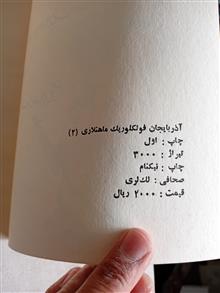 آذربایجان فولکلوریک ماهنلاری (۲)
چاپ : اول
تیراژ : ۳۰۰۰
چاپ : نیکنام
صحافی : لک‌لری
قیمت : ۲۰۰۰ ریال